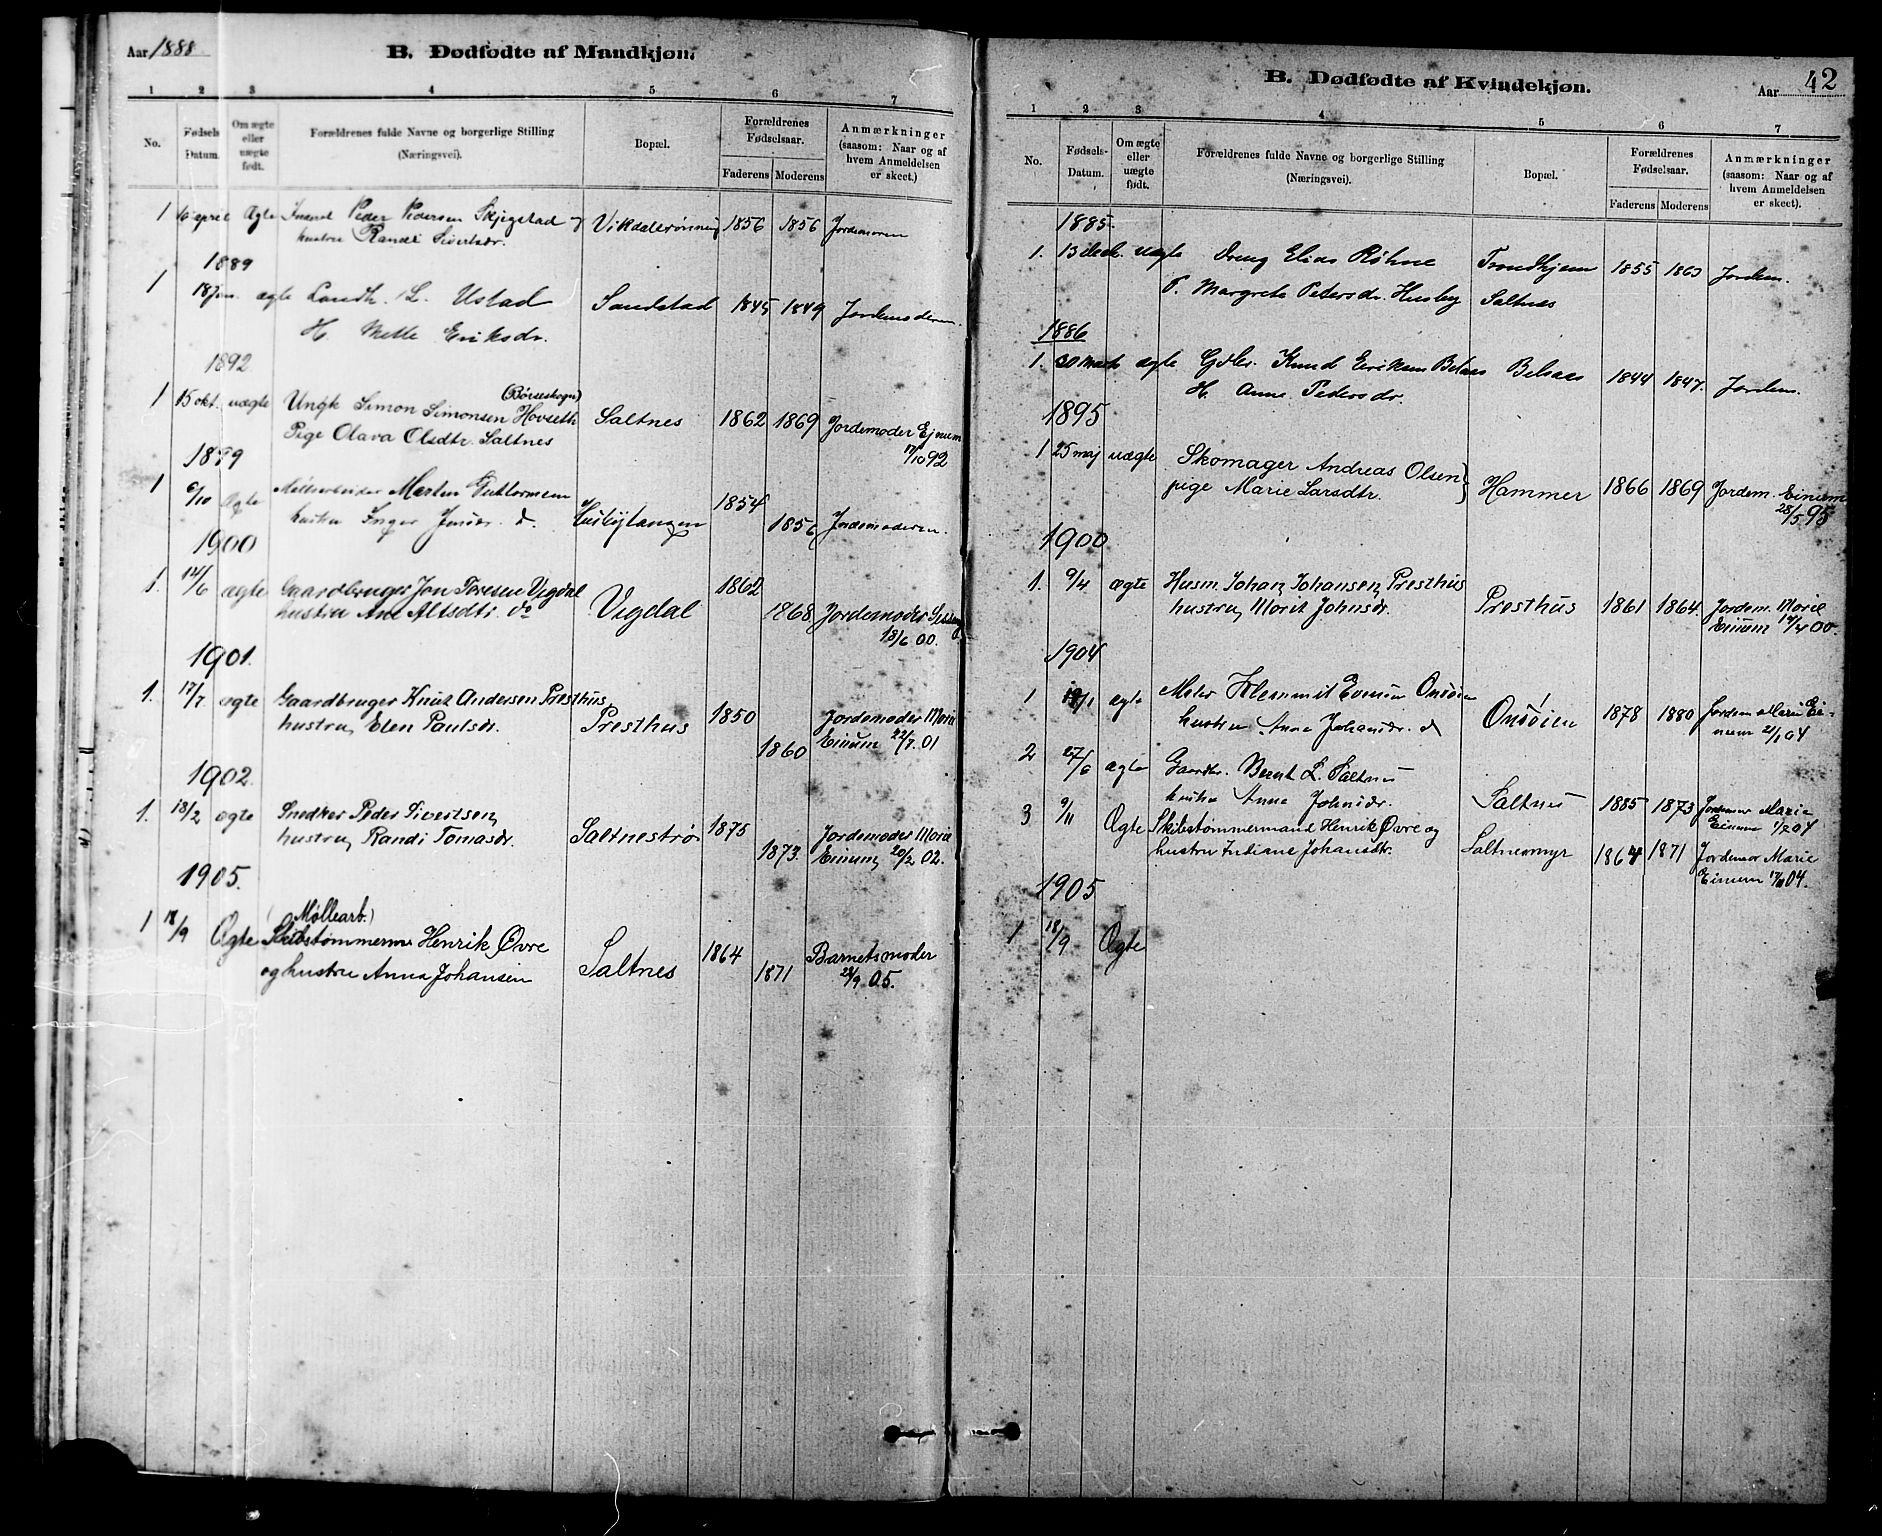 Aar 1888
B. Dødfødte af Mandkjøn.
1 2 3 4 5 6 7
No.
Fødsels Datum.
Om ægte eller uægte født.
Forældrenes fulde Navne og borgerlige Stilling
(Næringsvei).
Bopæl.
Forældrenes Fødselsaar.
Faderens Moderens
Anmærkninger
(saasom: Naar og af
hvem Anmeldelsen
er skeet.)
1 16 april Ægte Peder Pedersen Skjegstad Vikdalsrønning 1856 1856 Jordemoren
hustru Randi Sivertsdr.
1889
1 18 Jan. ægte Landh. L. Ustad Sandstad 1845 1849 Jordemoderen.
H. Mette Eriksdr.
1892
1 15 okt. uægte Ungk Simon Simonsen Hovseth (Børseskogn) Saltnes 1862 1869 Jordemoder Ejnum
Pige Olava Olsdtr. Saltnes 17/10 92
1899
1 6/10 Ægte Møllearbeider Morten Guttormsen Husbytangen 1854
hustru Inger Jensdr. d. 1856 Jordemoderen.
1900
1. 12/6 ægte Gaardbruger Jon Toresen Vigdal Vigdal 1862
hustru Ane Alfsdtr. do 1868 Jordemoder
18/6 00.
1901.
1. 17/7. ægte Gaardbruger Knut Andersen Presthus, Presthus 1850 Jordemoder Marie
hustru, Elen Paulsdr. 1860 Einum 22/7. 01
1902.
1. 18/2 ægte Snedker Peder Sivertsen, Saltnestrø 1875 Jordemoder Marie
hustru, Randi Tomasdr. 1873. Einum, 20/2 02.
1905.
(Møllearb.)
1 18/9 Ægte Skibstømmerm Henrik Øvre Saltnes 1864 Barnets moder
og hustru Anna Johansen 1871 23/9 05.
B. Dødfødte af Kvindekjøn.
Aar 42
1 2 3 4 5 6 7
No.
Fødsels-Datum.
Om ægte eller uægte født.
Forældrenes fulde Navne og borgerlige Stilling
(Næringsvei).
Bopæl.
Forældrenes Fødselsaar.
Faderens Moderens
Anmærkninger
(saasom: Naar og af
hvem Anmeldelsen
er skeet).
1885.
1. 13 decb. uægte Dreng Elias Røhne Trondhjem 1855 1863 Jordem.
P. Margrete Petersdr. Husby Saltnes
1886
1. 30 Marts ægte Gdbr. Knud Eriksen Belsaas Belsaas 1844 1847. Jordem.
H. Anne Pedersdr.
1895
1 25 maj uægte Skomager Andreas Olsen } Hammer 1866 1869 Jordem. Einum
pige Marie Larsdtr. 28/5 95
1900
1. 9/4 ægte Husm. Johan Johansen, Presthus Presthus 1861 1864. Jordem. Marie
hustru, Marit Johnsdr. Einum 17/4 00.
1904
1 19/1 ægte Maler Klemmit Evensen Onsøien Onsøien 1878 1880 Jordem Marie Ei-
hustru Anna Johansdr. d num 21/1 04
2 27/6 ægte Gaardbr. Bernt L. Saltnes Saltnes 1885 1873 Jordemor Marie
hustru Anna Johnsdr. Einum 1/7 04
3 9/11 Ægte Skibstømmermand Henrik Øvre og Saltnesmyr 1864 1871 Jordemor Marie
hustru Indiane Johansdtr. Einum 17/11 04.
1905
1 18/9 Ægte